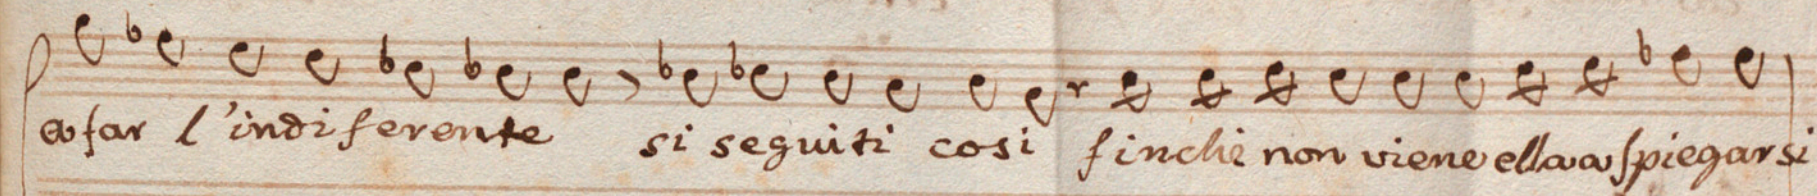 a far l'indiferente si seguiti cosi finche non viene ella a spiegarsi